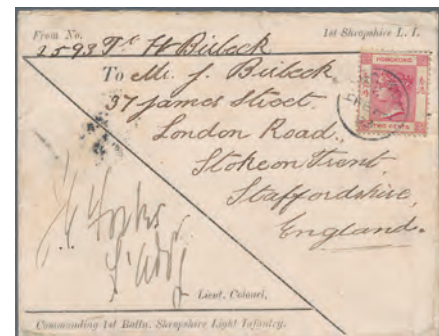 From No. 1st Shropshire L. I.
2593 H Birbeck
To Mr. J. Birbeck
37 James Street.
London Road,
Stoke on Trent,
Staffordshire,
England.
HONGKONG
TWO CENTS
Lieut. Colonel,
Commanding 1st Battn. Shropshire Light Infantry.